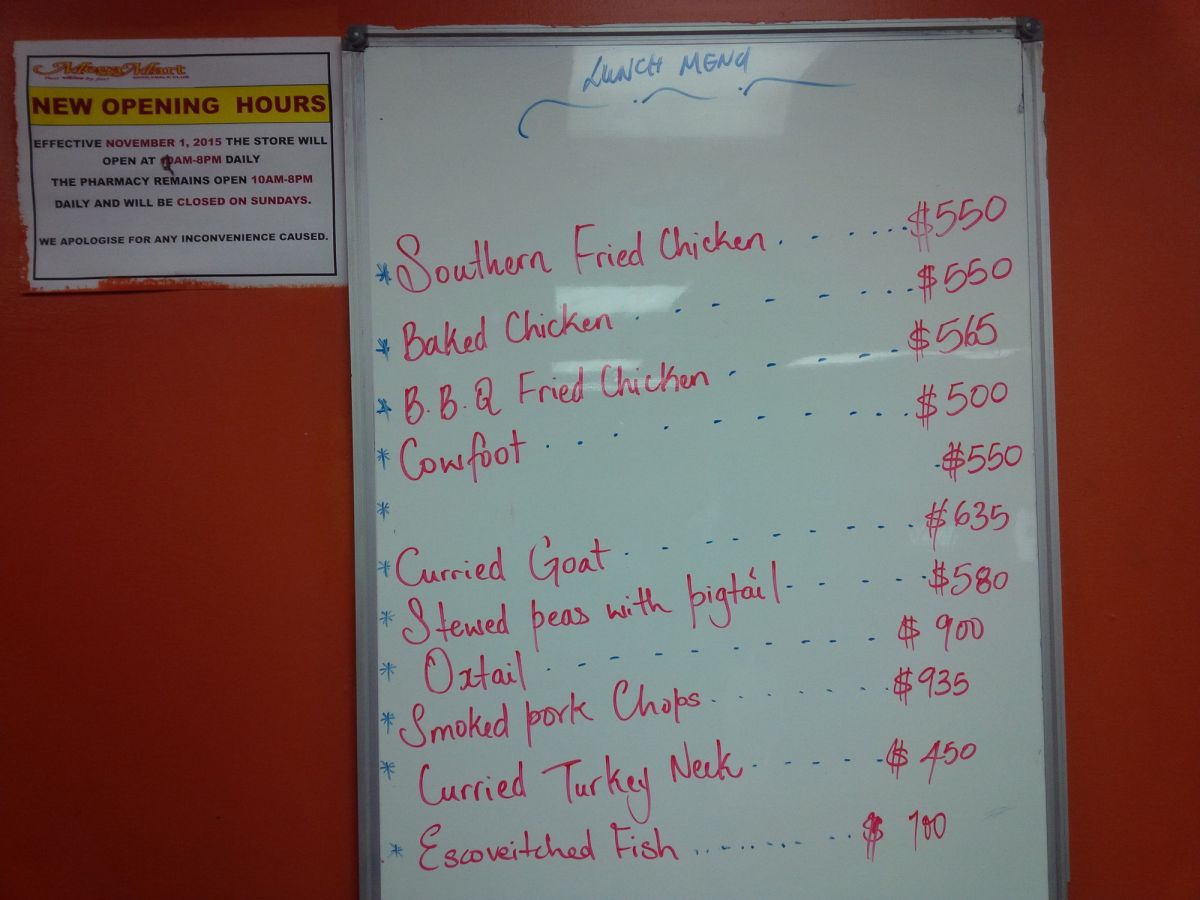 NEW OPENING HOURS
EFFECTIVE NOVEMBER 1, 2015 THE STORE WILL
OPEN AT AM-8PM DAILY
THE PHARMACY REMAINS OPEN 10AM-8PM
DAILY AND WILL BE CLOSED ON SUNDAYS.
WE APOLOGISE FOR ANY INCONVENIENCE CAUSED.
LUNCH MENU
* Southern Fried Chicken . - - - ..... $550
* Baked Chicken . - - - - - ... $550
* B.B.Q Fried Chicken - - - - ... $565
* Cowfoot . . . - - - - ... $500
* .$550
* Curried Goat . - - - - - .. $635
* Stewed peas with pigtail - - - - ... $580
* Oxtail . . - - - - - - - $900
* Smoked pork Chops . . . . . ... $935
* Curried Turkey Neck - - - - - .. $450
* Escoveitched Fish ........ - .. $700